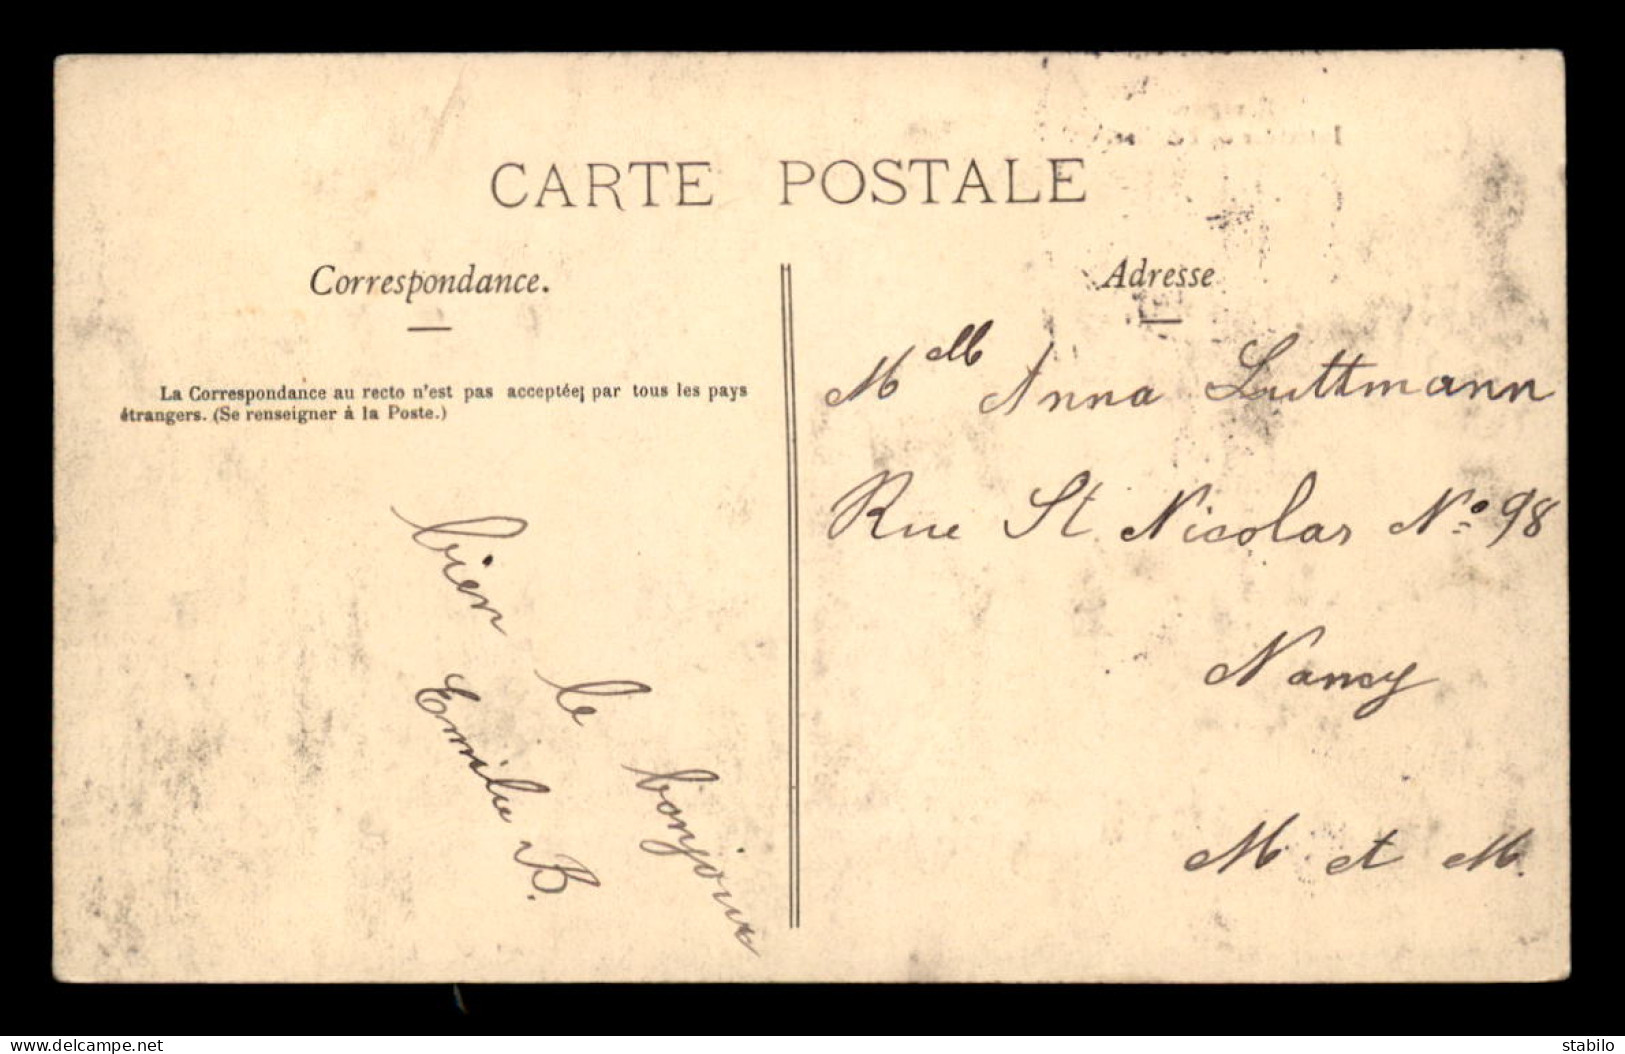 CARTE POSTALE
Correspondance.
La Correspondance au recto n'est pas acceptée; par tous les pays
étrangers. (Se renseigner à la Poste.)
bien le bonjour
Emilie B.
Adresse
Melle Anna Luttmann
Rue St Nicolas No 98
Nancy
M et M.
www.delcampe.net
stabilo